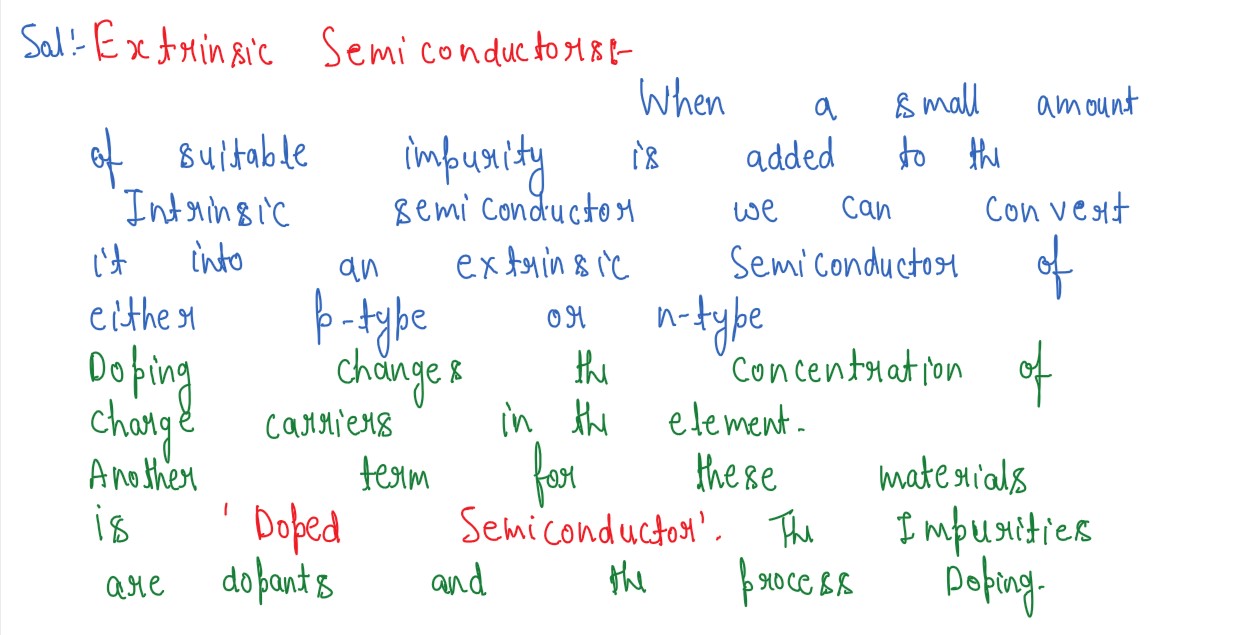 Sol:- Extrinsic Semiconductors:-
When a small amount
of suitable impurity is added to the
Intrinsic semiconductor we can convert
it into an extrinsic Semiconductor of
either p-type or n-type
Doping changes the Concentration of
charge carriers in the element.
Another term for these materials
is 'Doped Semiconductor'. The Impurities
are dopants and the process Doping.